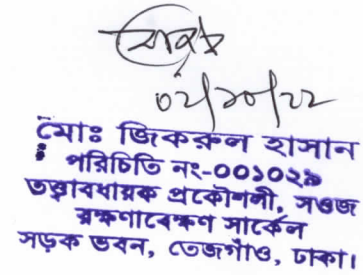 ০২/১০/২২
মোঃ জিকরুল হাসান
পরিচিতি নং-০০১০২৯
তত্ত্বাবধায়ক প্রকৌশলী, সওজ
রক্ষণাবেক্ষণ সার্কেল
সড়ক ভবন, তেজগাঁও, ঢাকা।